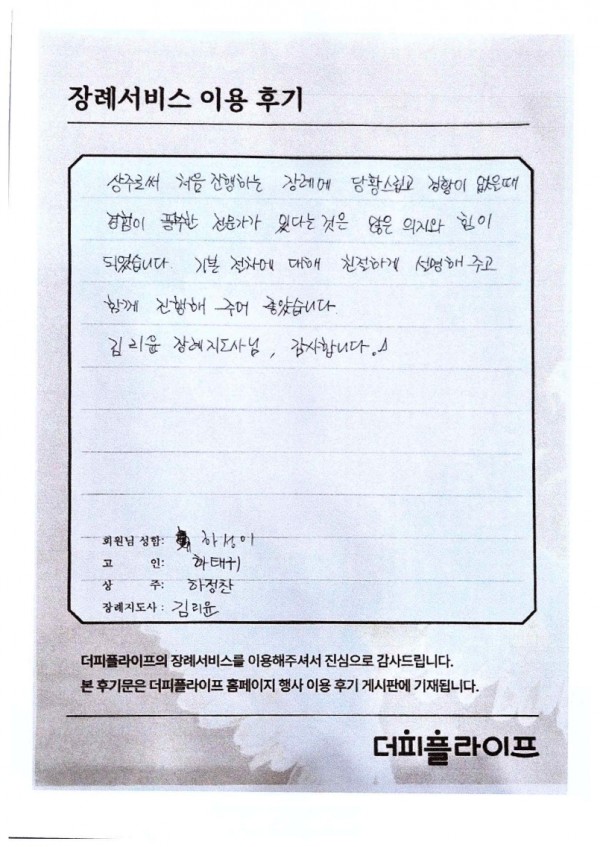 장례서비스 이용 후기
상주로써 처음 진행하는 장례에 당황스럽고 경황이 없을때
경험이 풍부한 전문가가 있다는 것은 많은 의지와 힘이
되었습니다. 기본 절차에 대해 친절하게 설명해 주고
함께 진행해 주어 좋았습니다.
김리윤 장례지도사님, 감사합니다.
회원님 성함: 하성이
고 인: 하태귀
상 주: 하정찬
장례지도사: 김리윤
더피플라이프의 장례서비스를 이용해주셔서 진심으로 감사드립니다.
본 후기문은 더피플라이프 홈페이지 행사 이용 후기 게시판에 기재됩니다.
더피플라이프